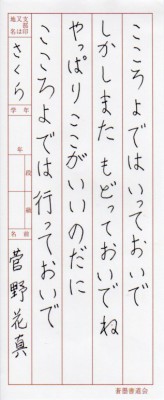 こころよではいっておいで
しかしまたもどっておいでね
やっぱりここがいいのだに
こころよでは行っておいで
支部印又は地名
さくら
学年
年
段
級
名前
菅野花真
書墨書道会